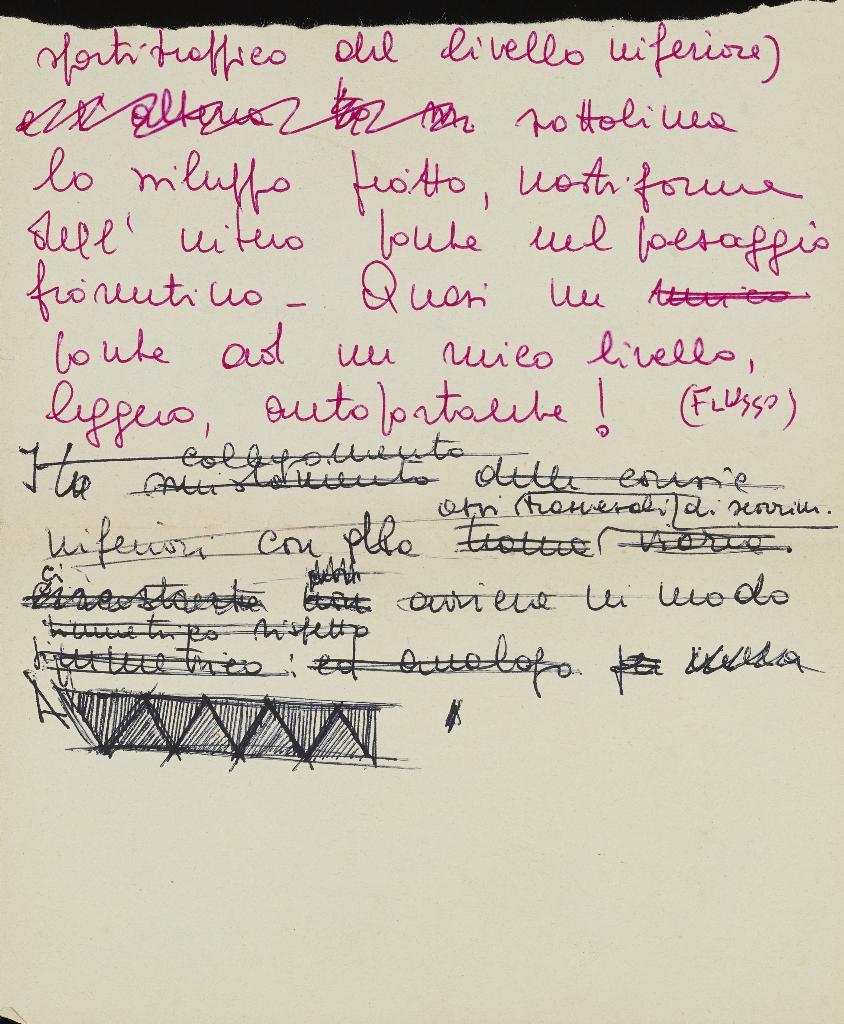 spartitraffico del livello inferiore)
sottolinea
lo sviluppo piatto, nastriforme
dell' intero ponte nel paesaggio
fiorentino - Quasi un unico
ponte ad un unico livello,
leggero, autoportante! (FLUSSO)
collegamento
Il delle corsie
assi trasversali di scorrim.
inferiori con
avviene in modo
simmetrico rispetto
simmetrico: ed analogo